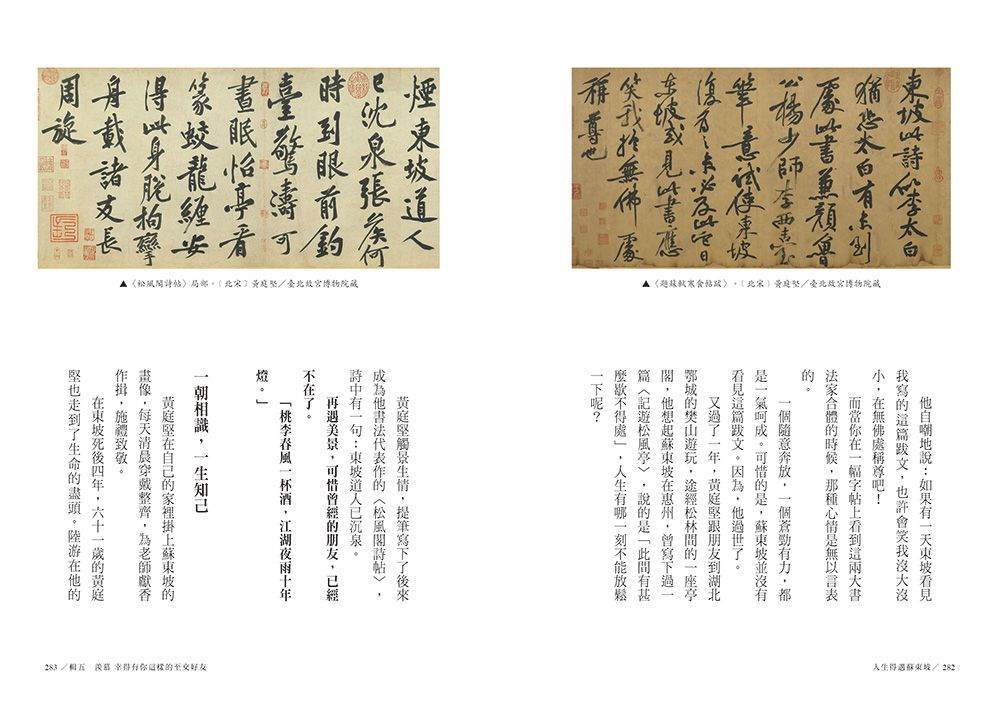 東坡此詩似李太白
猶恐太白有未到
處此書兼顏魯
公楊少師李西臺
筆意試使東坡
復為之未必及此它日
東坡或見此書應
笑我於無佛處
稱尊也
▲〈題蘇軾寒食帖跋〉。〔北宋〕黃庭堅／臺北故宮博物院藏
他自嘲地說：如果有一天東坡看見
我寫的這篇跋文，也許會笑我沒大沒
小，在無佛處稱尊吧！
而當你在一幅字帖上看到這兩大書
法家合體的時候，那種心情是無以言表
的。
一個隨意奔放，一個蒼勁有力，都
是一氣呵成。可惜的是，蘇東坡並沒有
看見這篇跋文。因為，他過世了。
又過了一年，黃庭堅跟朋友到湖北
鄂城的樊山遊玩，途經松林間的一座亭
閣，他想起蘇東坡在惠州，曾寫下過一
篇〈記遊松風亭〉，說的是「此間有甚
麼歇不得處」，人生有哪一刻不能放鬆
一下呢？
人生得遇蘇東坡／ 282
煙東坡道人
已沈泉張矦何
時到眼前釣
臺驚濤可
晝眠怡亭看
篆蛟龍纏安
得此身脫拘攣
舟載諸友長
周旋
▲〈松風閣詩帖〉局部。〔北宋〕黃庭堅／臺北故宮博物院藏
黃庭堅觸景生情，提筆寫下了後來
成為他書法代表作的〈松風閣詩帖〉，
詩中有一句：東坡道人已沉泉。
再遇美景，可惜曾經的朋友，已經
不在了。
「桃李春風一杯酒，江湖夜雨十年
燈。」
一朝相識，一生知己
黃庭堅在自己的家裡掛上蘇東坡的
畫像，每天清晨穿戴整齊，為老師獻香
作揖，施禮致敬。
在東坡死後四年，六十一歲的黃庭
堅也走到了生命的盡頭。陸游在他的
283 ／輯五 羨慕 幸得有你這樣的至交好友